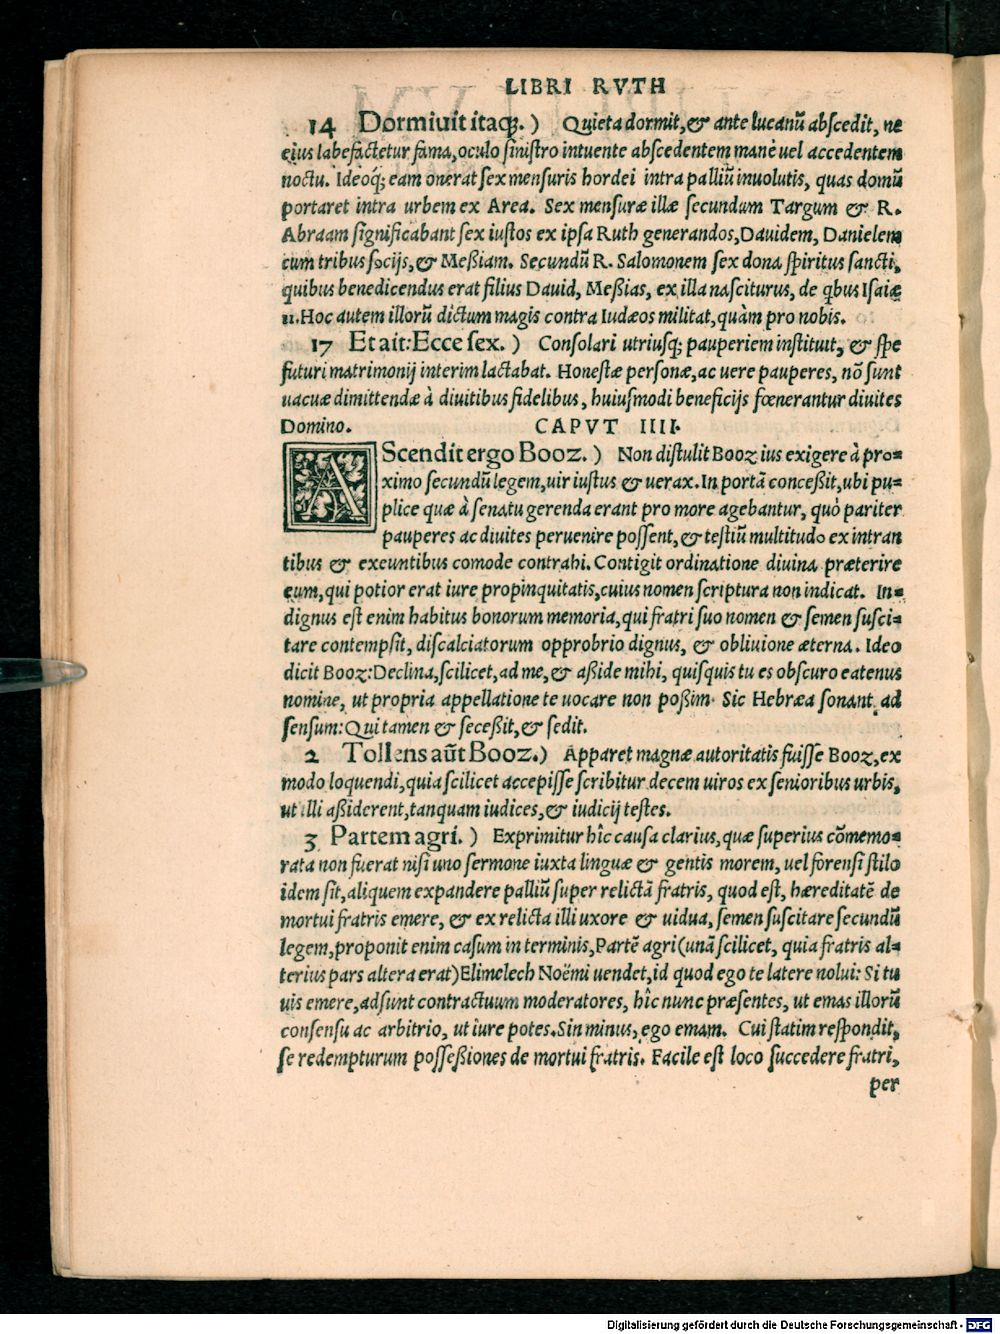 LIBRI RVTH
14 Dormiuit itaq́;.) Quieta dormit, & ante lucanũ abſcedit, ne
eius labefactetur fama, oculo ſiniſtro intuente abſcedentem manè uel accedentem
noctu. Ideoq́; eam onerat ſex menſuris hordei intra palliũ inuolutis, quas domũ
portaret intra urbem ex Area. Sex menſuræ illæ ſecundum Targum & R.
Abraam ſignificabant ſex iuſtos ex ipſa Ruth generandos, Dauidem, Danielem
cum tribus ſocijs, & Meßiam. Secundũ R. Salomonem ſex dona ſpiritus ſancti,
quibus benedicendus erat filius Dauid, Meßias, ex illa naſciturus, de qbus Iſaiæ
11. Hoc autem illorũ dictum magis contra Iudæos militat, quàm pro nobis.
17 Et ait: Ecce ſex.) Conſolari utriuſq; pauperiem inſtituit, & ſpe
futuri matrimonij interim lactabat. Honeſtæ perſonæ, ac uere pauperes, nõ ſunt
uacuæ dimittendæ à diuitibus fidelibus, huiuſmodi beneficijs fœnerantur diuites
Domino. CAPVT IIII.
AScendit ergo Booz.) Non diſtulit Booz ius exigere à pro=
ximo ſecundũ legem, uir iuſtus & uerax. In portã conceßit, ubi pu=
plice quæ à ſenatu gerenda erant pro more agebantur, quò pariter
pauperes ac diuites peruenire poſſent, & teſtiũ multitudo ex intran
tibus & exeuntibus comode contrahi. Contigit ordinatione diuina præterire
eum, qui potior erat iure propinquitatis, cuius nomen ſcriptura non indicat. In=
dignus eſt enim habitus bonorum memoria, qui fratri ſuo nomen & ſemen ſuſci=
tare contempſit, diſcalciatorum opprobrio dignus, & obliuione æterna. Ideo
dicit Booz: Declina, ſcilicet, ad me, & aßide mihi, quiſquis tu es obſcuro eatenus
nomine, ut propria appellatione te uocare non poßim. Sic Hebræa ſonant ad
ſenſum: Qui tamen & ſeceßit, & ſedit.
2 Tollens aũt Booz.) Apparet magnæ autoritatis fuiſſe Booz, ex
modo loquendi, quia ſcilicet accepiſſe ſcribitur decem uiros ex ſenioribus urbis,
ut illi aßiderent, tanquam iudices, & iudicij teſtes.
3 Partem agri.) Exprimitur hîc cauſa clarius, quæ ſuperius cõmemo=
rata non fuerat niſi uno ſermone iuxta linguæ & gentis morem, uel forenſi ſtilo
idem ſit, aliquem expandere palliũ ſuper relictã fratris, quod eſt, hæreditatẽ de
mortui fratris emere, & ex relicta illi uxore & uidua, ſemen ſuſcitare ſecundũ
legem, proponit enim caſum in terminis, Partẽ agri (unã ſcilicet, quia fratris al=
terius pars altera erat) Elimelech Noëmi uendet, id quod ego te latere nolui: Si tu
uis emere, adſunt contractuum moderatores, hîc nunc præſentes, ut emas illorũ
conſenſu ac arbitrio, ut iure potes. Sin minus, ego emam. Cui ſtatim reſpondit,
ſe redempturum poſſeßiones de mortui fratris. Facile eſt loco ſuccedere fratri,
per
Digitalisierung gefördert durch die Deutsche Forschungsgemeinschaft - DFG